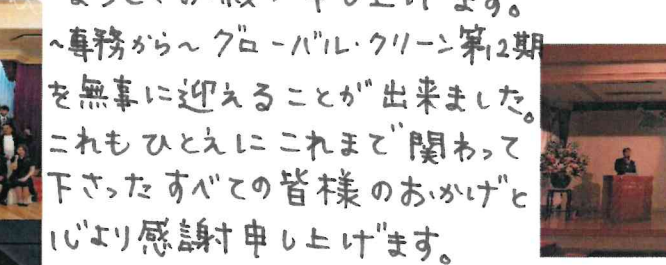 申し上げます。
~専務から~ グローバル・クリーン第12期
を無事に迎えることが出来ました。
これもひとえにこれまで関わって
下さったすべての皆様のおかげと
心より感謝申し上げます。